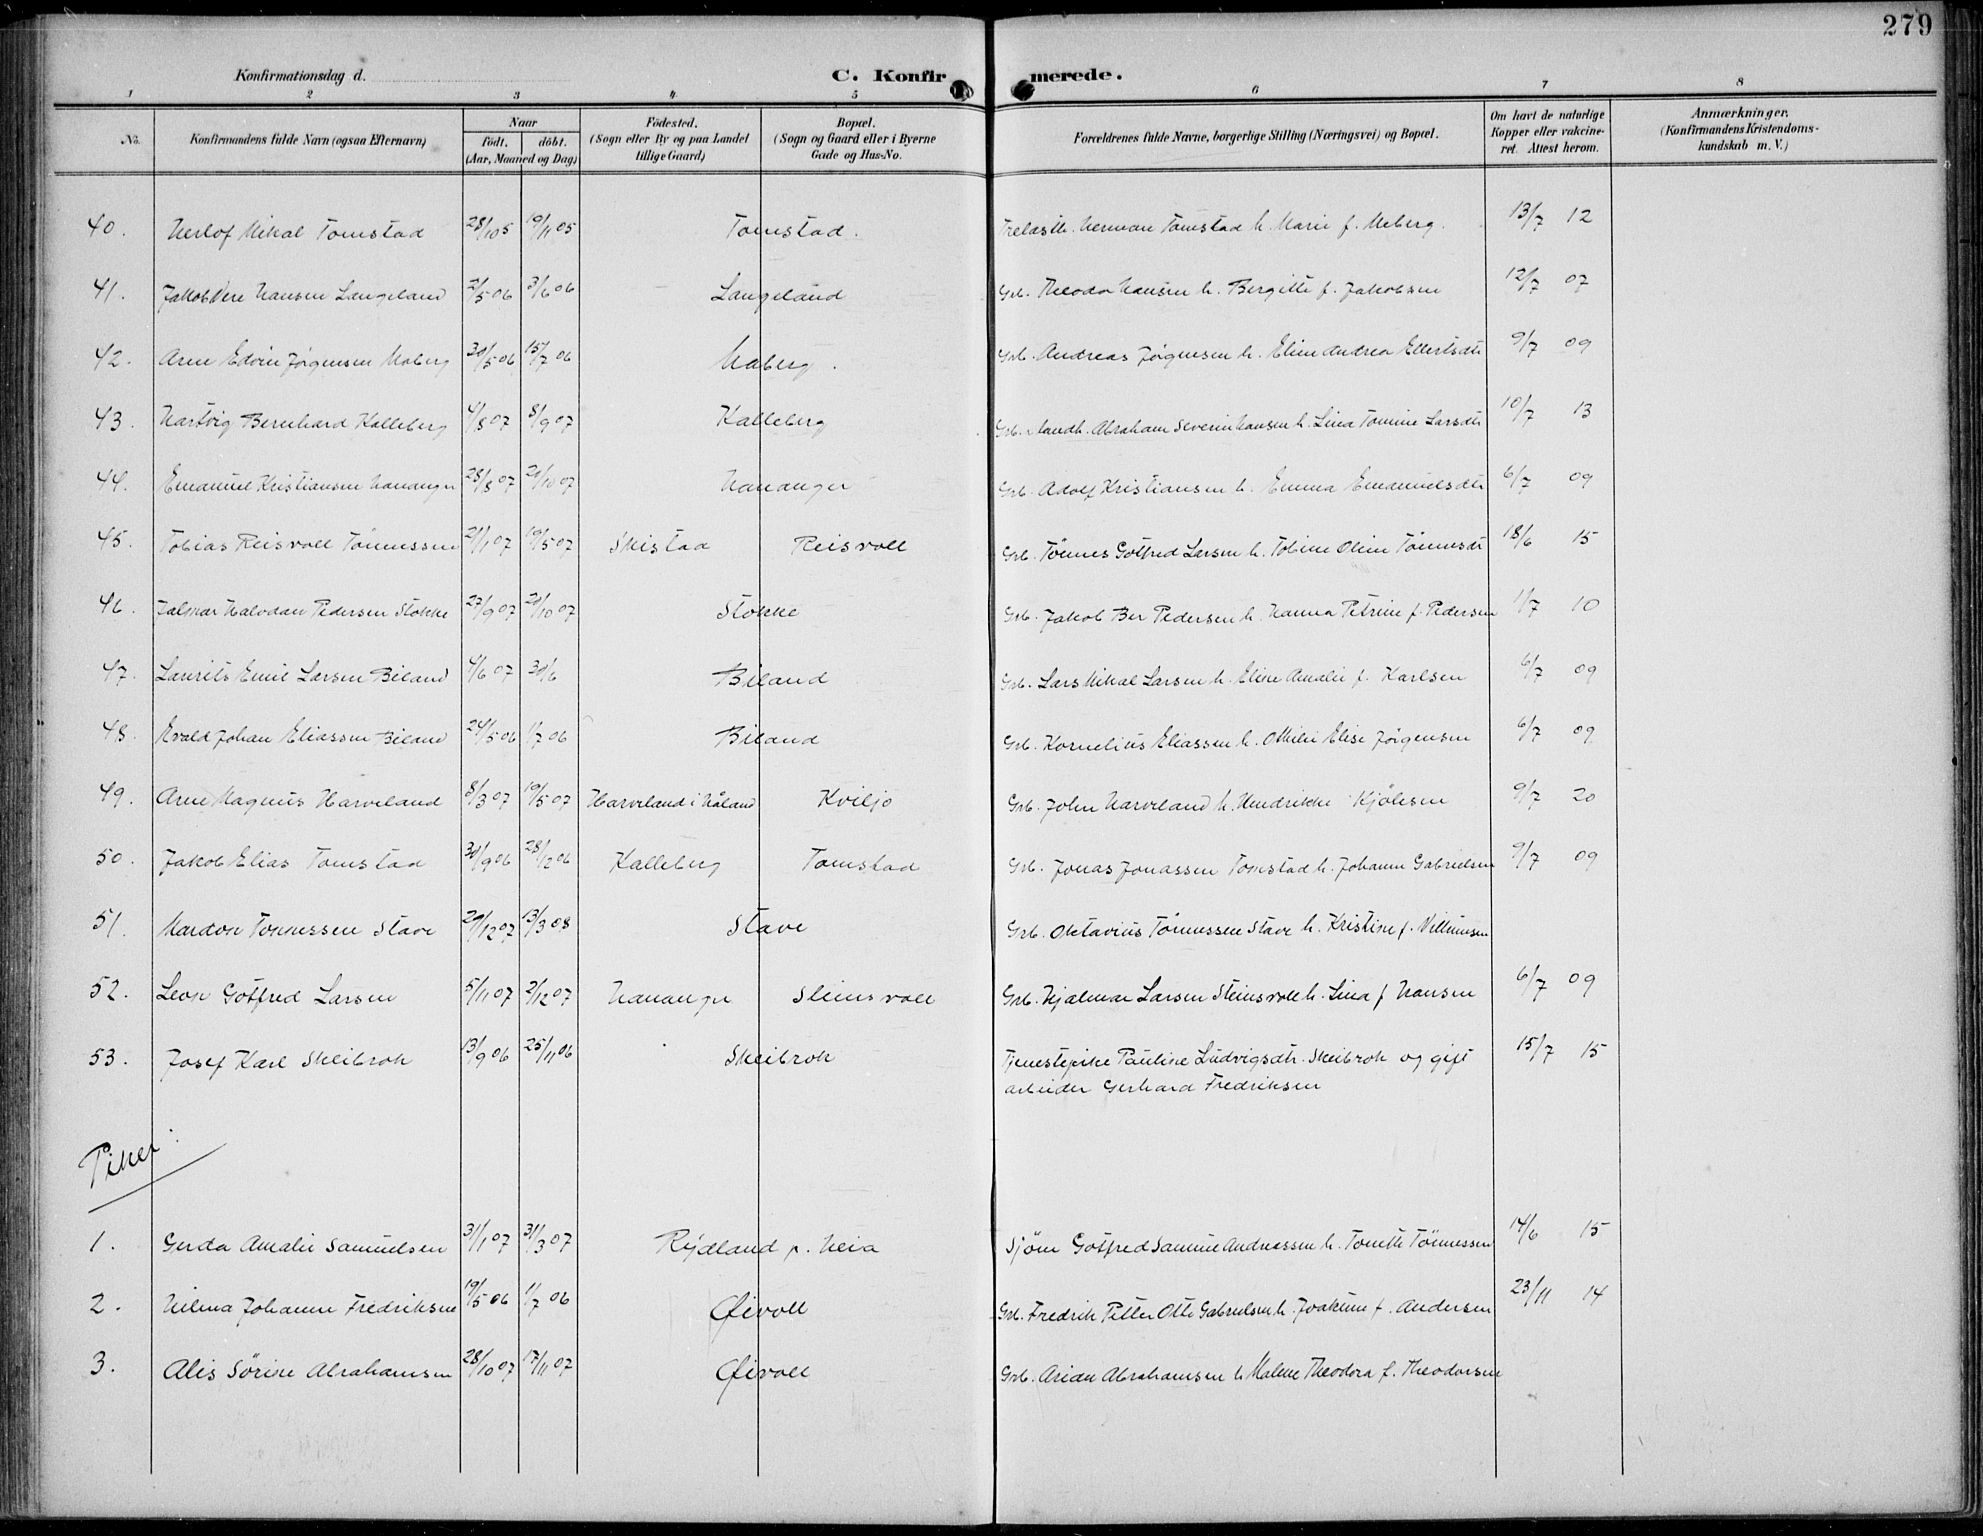 279
Konfirmationsdag d.
C. Konfirmerede.
1 2 3 4 5 6 7 8
No. Konfirmandens fulde Navn (ogsaa Efternavn) Naar født. døbt. (Aar, Maaned og Dag) Fødested. (Sogn eller By og paa Landet tillige Gaard) Bopæl. (Sogn og Gaard eller i Byerne Gade og Hus-No. Forældrenes fulde Navne, borgerlige Stilling (Næringsvei) og Bopæl. Om havt de naturlige Kopper eller vakcineret. Attest herom. Anmærkninger. (Konfirmandens Kristendomskundskab m. V.)
40. Herlof Mikal Tomstad 28/10 5 19/11 05 Tomstad. Trelasth. Herman Tomstad h. Marie f. Meberg. 13/7 12
41. Jakob Hansen Langeland 2/5 06 3/6 06 Langeland Grb. Theodor Hansen h. Bergitte f. Jakobsen 12/7 07
42. Arne Edvin Jørgensen Maberg 30/5 06 15/7 06 Maberg. Grb. Andreas Jørgensen h. Eline Andrea Ellertsdtr 9/7 09
43. Hartvig Bernhard Kalleberg 4/8 07 8/9 07 Kalleberg Grb. Abraham Severin Hansen h. Lina Tomine Larsdtr 10/7 13
44. Emanuel Kristiansen Hananger 28/8 07 20/10 07 Hananger Grb. Adolf Kristiansen h. Emma Emanuelsdtr 6/7 09
45. Tobias Reisvoll Tønnessen 21/1 07 19/5 07 Skistad Reisvoll Grb. Tønnes Gotfred Larsen h. Tobine Oline Tønnesdtr 18/6 15
46. Jalmar Halvdan Pedersen Stokke 27/9 07 20/10 07 Stokke Grb. Jakob Ber Pedersen h. Hanna Petrine f. Pedersen 1/7 10
47. Laurits Emil Larsen Biland 4/6 07 30/6 Biland Grb. Lars Mikal Larsen h. Eline Amalie f. Karlsen 6/7 09
48. Evald Johan Eliassen Biland 24/5 06 1/7 06 Biland Grb. Kornelius Eliassen h. Otilie Elise Jørgensen 6/7 09
49. Arne Magnus Harveland 8/3 07 19/5 07 Harveland i Håland Kviljo Grb. John Harveland h. Hendrikke Kjølesen 9/7 20
50. Jakob Elias Tomstad 30/9 06 28/12 06 Kalleberg Tomstad Grb. Jonas Jonassen Tomstad h. Johanne Gabrielsen 9/7 09
51. Mardon Tønnessen Stave 29/12 07 13/3 08 Stave Grb. Oktavius Tønnessen Stave h. Kristine f. Villumsen
52. Leon Gotfred Larsen 5/11 07 2/12 07 Hananger Steinsvoll Grb. Hjalmar Larsen Steinsvoll h. Lina f Hansen 6/7 09
53. Josef Karl Skeibrok 13/9 06 25/11 06 Skeibrok Tjenestepike Pauline Ludvigsdtr. Skeibrok og gift 15/7 15
arbeider Gerhard Fredriksen
Piker
1. Gerda Amalie Samuelsen 31/1 07 31/3 07 Rydland p. Heia Sjøm Gotfred Samine Andreassen h. Tomette Tønnessen 14/6 15
2. Hilma Johanne Fredriksen 19/5 06 1/7 06 Øivoll Grb. Fredrik Petter Otto Gabrielsen h. Joakime f. Andersen 23/11 14
3. Alis Sørine Abrahamsen 28/10 07 17/11 07 Øivoll Grb. Arian Abrahamsen h Malene Theodora f. Theodorsen